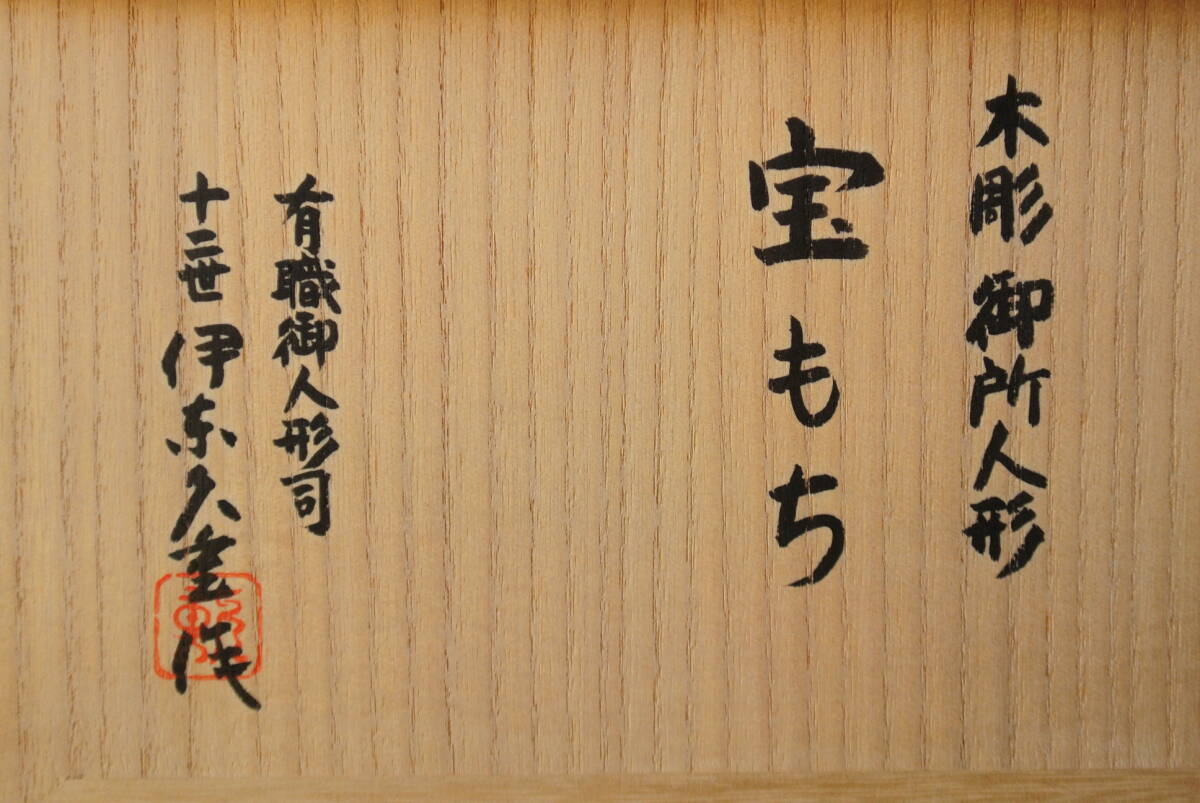 木彫御所人形
宝もち
有職御人形司
十二世伊東久重作